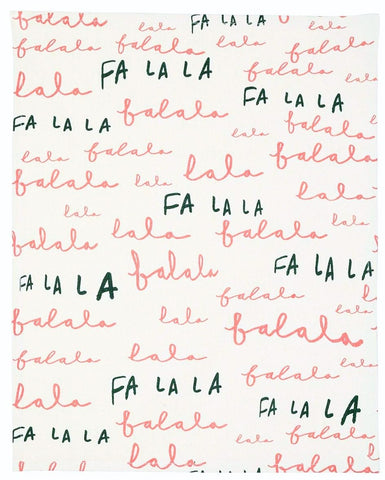 falala lala falala
falala falala lala
FA LA LA falala
lala falala FA LA LA
FA LA LA lala falala
lala falala lala
falala lala falala
lala FA LA LA lala
falala lala falala
falala FA LA LA
FA LA LA lala
falala lala falala
falala lala lala
lala FA LA LA falala
falala FA LA LA
FA LA LA lala falala
falala lala